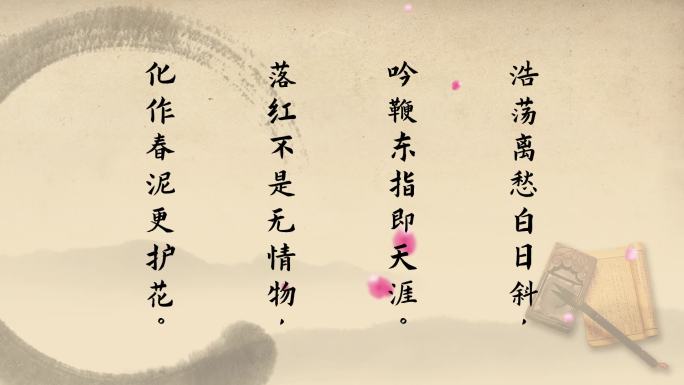 浩荡离愁白日斜，
吟鞭东指即天涯。
落红不是无情物，
化作春泥更护花。